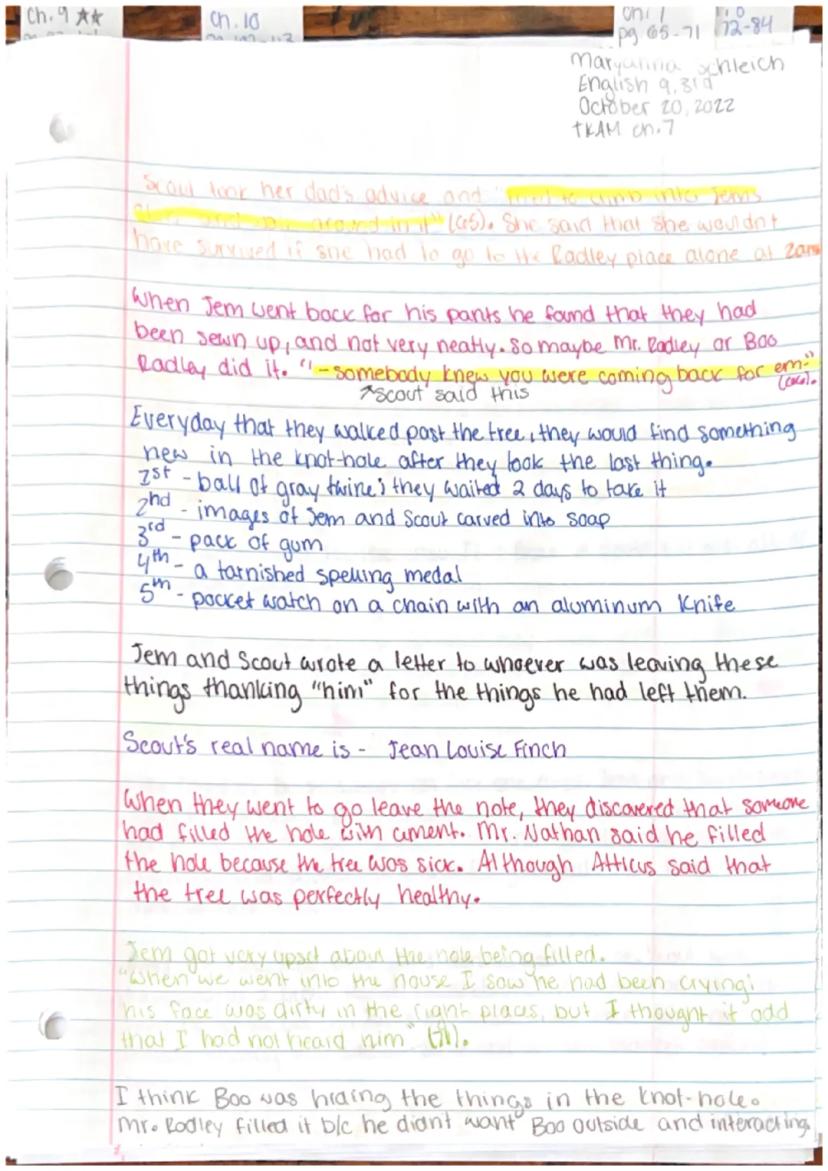 Ch. 9 ★★
Ch. 10
pg 65-71
72-84
Maryanna Schleich
English 9, 3rd
October 20, 2022
TKAM ch. 7
Scout took her dad's advice and "tried to climb into Jem's
skin and walk around in it" (65). She said that she wouldn't
have survived if she had to go to the Radley place alone at 2am
When Jem went back for his pants he found that they had
been sewn up, and not very neatly. So maybe Mr. Radley or Boo
Radley did it. "-somebody knew you were coming back for em-"
↗Scout said this
Everyday that they walked past the tree, they would find something
new in the knot-hole after they took the last thing.
1st - ball of gray twine; they waited 2 days to take it
2nd - images of Jem and Scout carved into soap
3rd - pack of gum
4th - a tarnished spelling medal
5th - pocket watch on a chain with an aluminum knife
Jem and Scout wrote a letter to whoever was leaving these
things thanking "him" for the things he had left them.
Scout's real name is - Jean Louise Finch
When they went to go leave the note, they discovered that someone
had filled the hole with cement. Mr. Nathan said he filled
the hole because the tree was sick. Although Atticus said that
the tree was perfectly healthy.
Jem got very upset about the hole being filled.
"When we went into the house I saw he had been crying;
his face was dirty in the right places, but I thought it odd
that I had not heard him" (71).
I think Boo was hiding the things in the knot-hole.
Mr. Radley filled it b/c he didnt want Boo outside and interacting